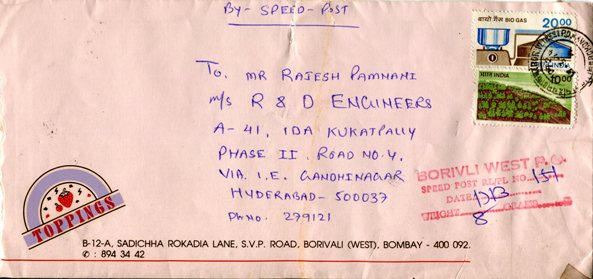 By - SPEED - POST
बायो गैस BIO GAS
20.00
भारत INDIA
To, MR RAJESH PAMNANI
M/S R & D ENGINEERS
A-41, IDA KUKATPALLY
PHASE II ROAD NO.4,
VIA. I.E. GANDHINAGAR
HYDERABAD - 500037
PH NO. 279121
BORIVLI WEST P.O.
SPEED POST RL/PL NO. 151
DATE
WEIGHT 8 GRAMS
TOPPINGS
B-12-A, SADICHHA ROKADIA LANE, S.V.P. ROAD, BORIVALI (WEST), BOMBAY - 400 092.
✆ : 894 34 42